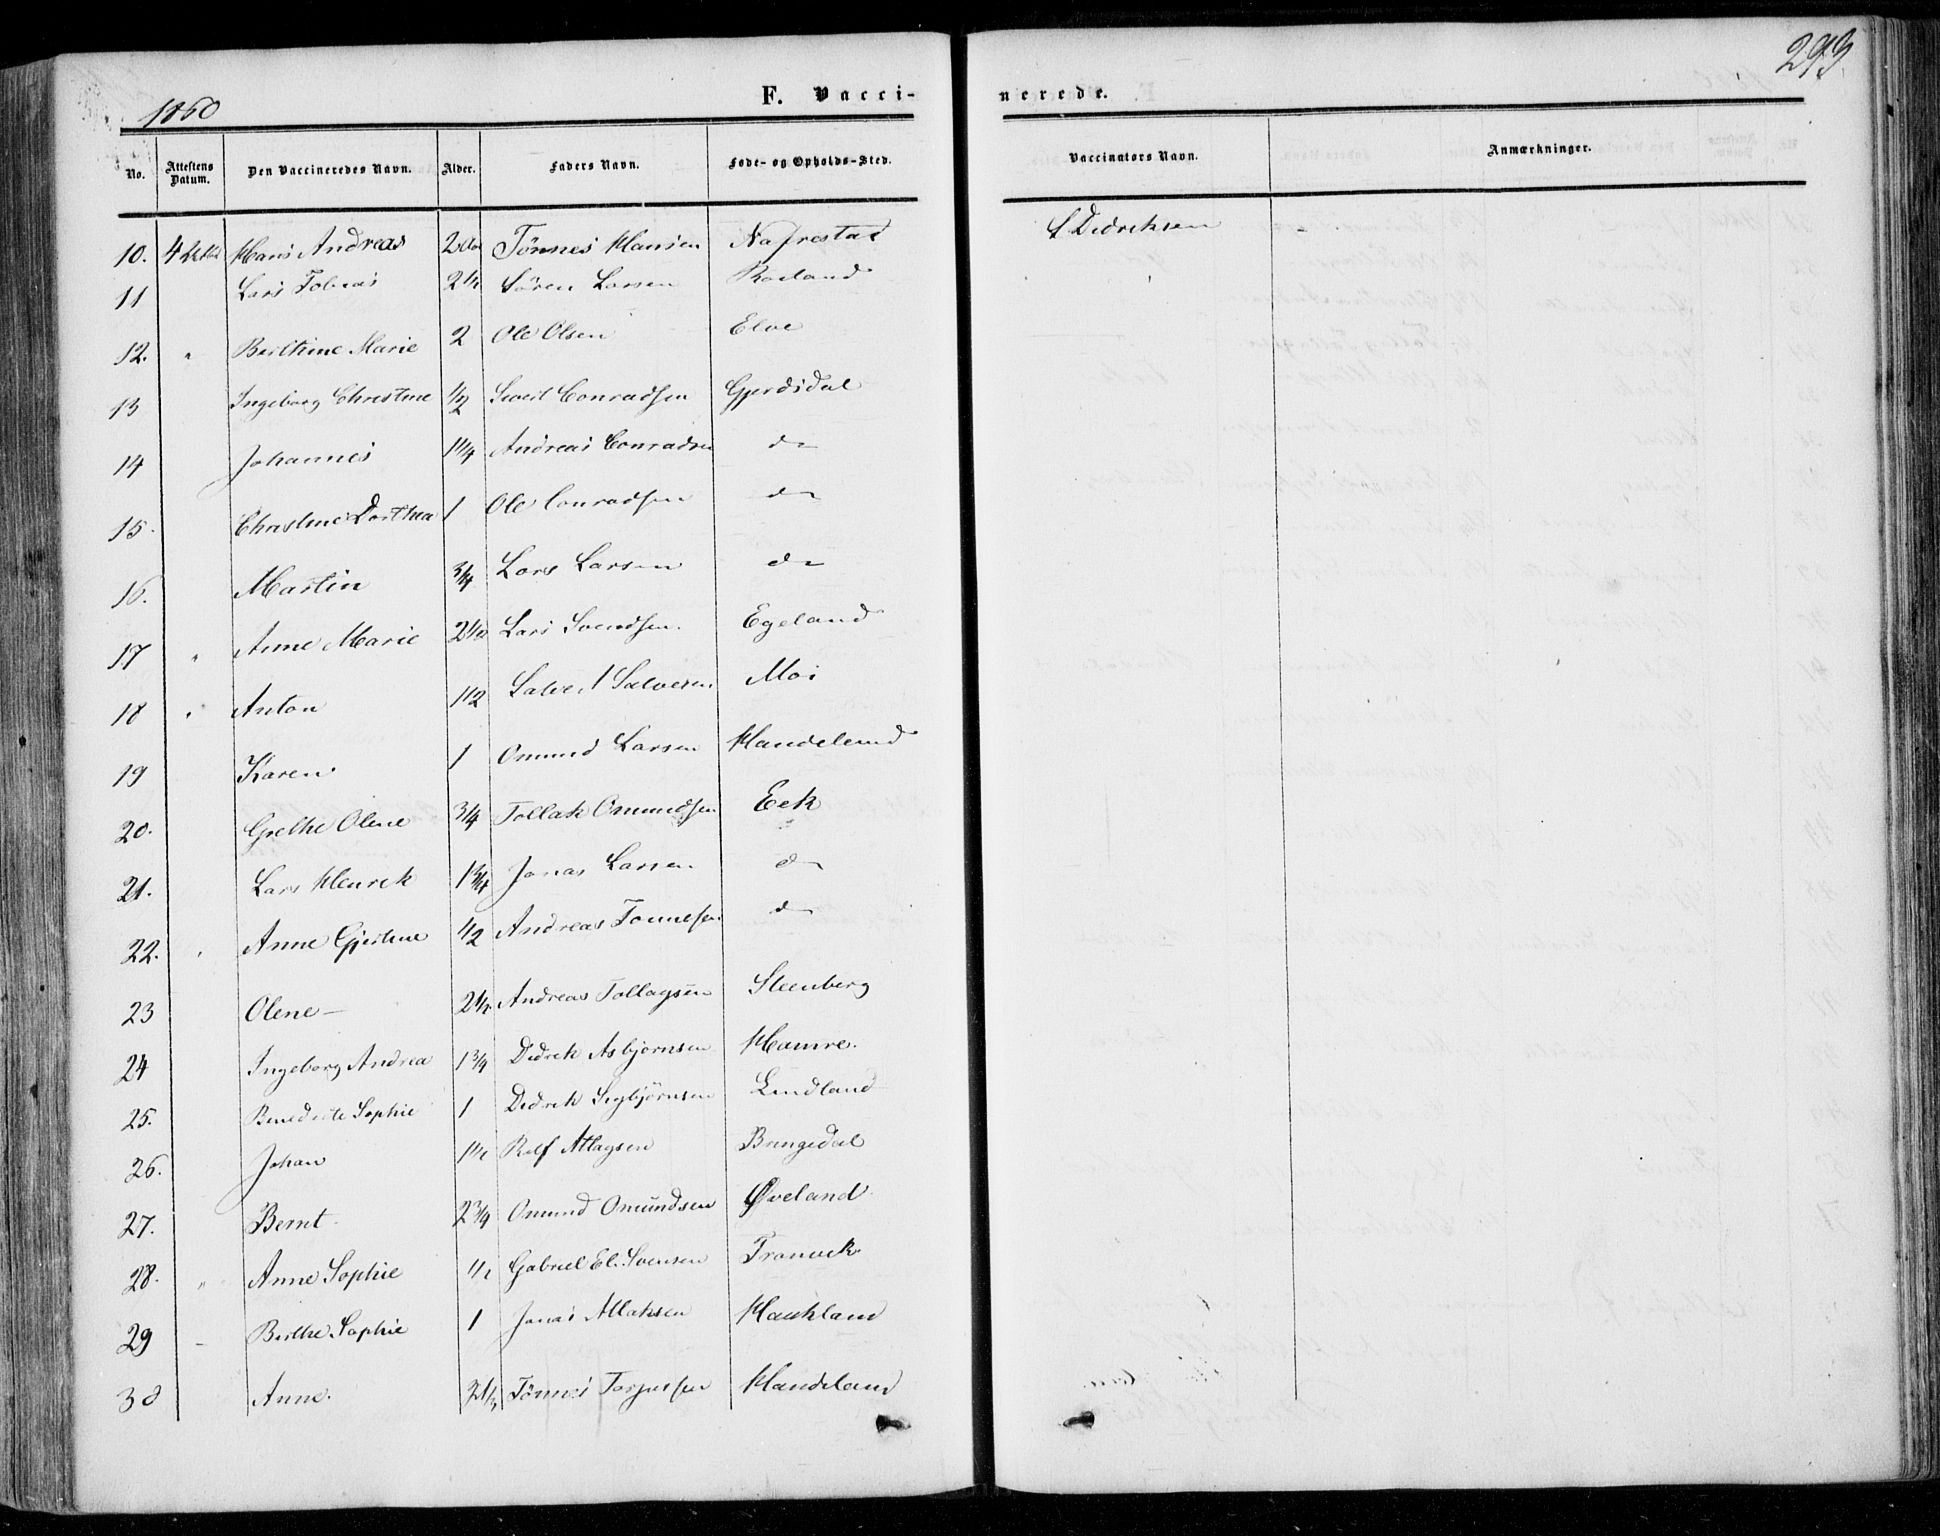 1860
F. Vacci-
nerede.
293
No. Attestens Datum. Den Vaccineredes Navn. Alder. Faders Navn. Føde- og Opholds-Sted. Vaccinators Navn. Anmærkninger.
10. 4 Hans Andreas 2 Tönnes Hansen S Didriksen
11 Lars Tobias 2 1/2 Sören Larsen Roeland
12. " Berthine Marie 2 Ole Olsen Elve
13 Ingeborg Christine 1/2 Sivert Conradsen Gjerdsdal
14 Johannes 1 1/4 Andreas Conradsen do
15. Christine Dorthea 1 Ole Conradsen do
16. Martin 3/4 Lars Larsen do
17 " Anne Marie 2 1/2 Lars Svendsen. Egeland
18 " Anton 1 1/2 Salve Salvesen Moi
19 Karen 1 Omund Larsen Handeland
20. Grethe Olene 3/4 Tollak Omundsen Eek
21. Lars Henrik 1 3/4 Jonas Larsen do
22. " Anne Gjertine 1/2 Andreas Tonnesen do
23 Olene 2 1/2 Andreas Tollagsen Steenberg
24 Ingeborg Andrea 1 3/4 Didrik Asbjørnsen Hamre.
25. Benedicte Sophie 1 Didrik Sigbjörnsen Lindland
26. Johan 1 1/2 Rolf Atlagsen Bringedal
27. Bernt 2 3/4 Omund Omundsen Øveland
28. " Anne Sophie 1/2 Gabriel El. Svensen Tronvik
29 - Berthe Sophie 1 Jonas Atlaksen Haukland
30 Anne. 2 1/2 Tönnes Torjussen Handeland